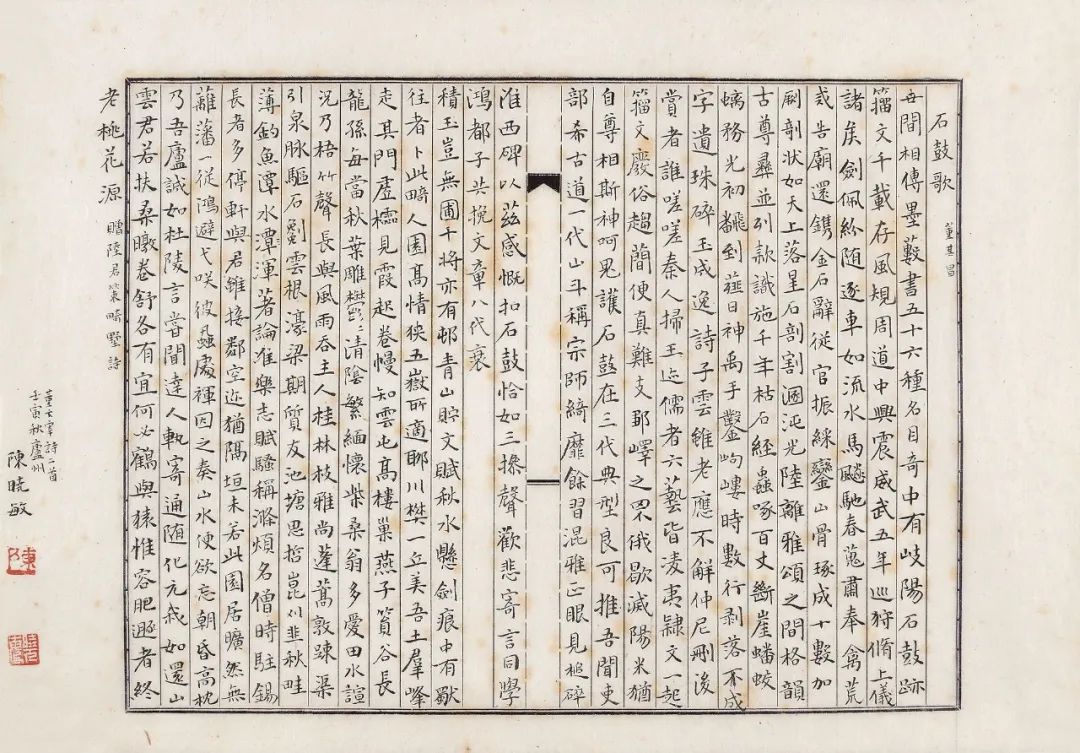 石鼓歌 董其昌
世間相傳墨藪書五十六種名目奇中有岐陽石鼓跡
籀文千載存風規周道中興震威武五年巡狩脩上儀
諸矦劍佩紛随逐車如流水馬飈馳春蒐肅奉禽荒
戒告廟還鐫金石辭従官振綵鑾山骨琢成十數加
剞剖狀如天上落星石剖割圂沌光陸離雅頌之間格韻
古尊彞並列款識施千年枯石經蟲啄百丈斷崖蟠蛟
螭務光初飜到薤日神禹手鑿岣嶁時數行剥落不成
字遺珠碎玉成逸詩子雲雖老應不解仲尼刪後
賞者誰嗟嗟秦人掃王迹儒者六藝皆凌夷隷文一起
籀文廢俗趨蕳便真難支鄒嶧之罘俄歇滅陽米猶
自尊相斯神呵鬼護石鼓在三代典型良可推吾聞吏
部希古道一代山斗稱宗師綺靡餘習混雅正眼見槌碎
淮西碑以茲感慨扣石鼓恰如三撾聲歡悲寄言同學
鴻都子共挽文章八代衰
積玉豈無圃干將亦有邨青山貯文賦秋水懸劍痕中有歇
往者卜此畸人園髙情狹五嶽所適耶川樊一丘美吾土羣峰
走其門虚櫺見霞起卷幔知雲屯髙樓巢燕子篔谷長
龍孫每當秋葉雕欝〻清陰繁緬懷柴桑翁多愛田水諠
況乃梧竹聲長與風雨吞主人桂林枝雅尚蓬蒿敦踈渠
引泉脉驅石剜雲根濠梁期質友池塘思哲昆似韭秋畦
薄釣魚潭水渾著論准樂志賦騷稱滌煩名僧時駐錫
長者多停軒與君雖接鄰空迩猶隔垣未若此園居曠然無
蘺藩一従鴻避弋咲彼虱處褌因之奏山水便欲忘朝昏高枕
乃吾廬誠如杜陵言嘗聞達人執寄通随化元我如還山
雲君若扶桑暾卷舒各有宜何必鶴與猿惟容肥遯者終
老桃花源 贈陸君策畸墅詩
董太宰詩二首
壬寅秋廬州
陳曉敏